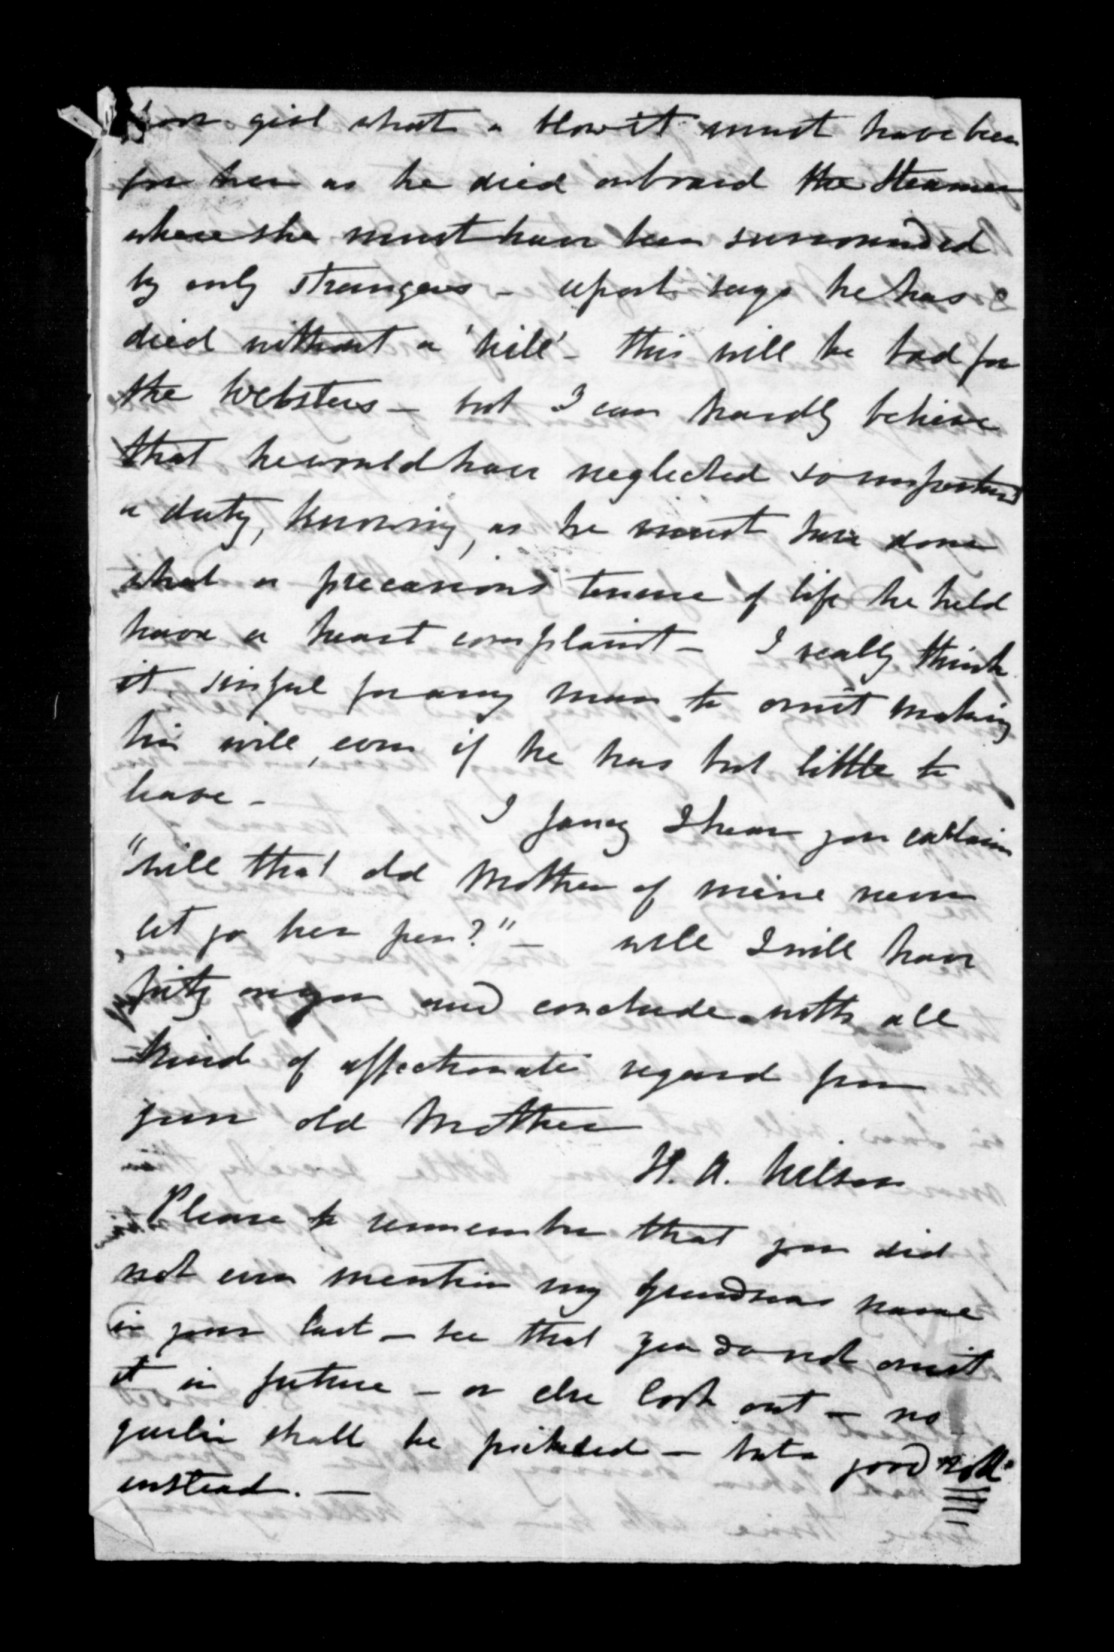 Poor girl what a blow it must have been
for her as he died onboard the Steamer
where she must have been surrounded
by only strangers – report says he has
died without a 'Will' – this will be bad for
the Websters – but I can hardly believe
that he would have neglected so important
a duty, knowing, as he must have done
what a precarious tenure of life he held
have a heart complaint – I really think
it sinful for any man to omit making
his will, even if he has but little to
leave –
I fancy I hear you exclaim
"will that old Mother of mine never
let go her pen?" – well I will have
pity on you and conclude with all
kind of affectionate regard from
your old Mother
H. A. Wilson
Please to remember that you did
not even mention my Grandsons name
in your last – see that you do not omit
it in future – or else look out – no
garlic shall be pickled – but a good
instead. –